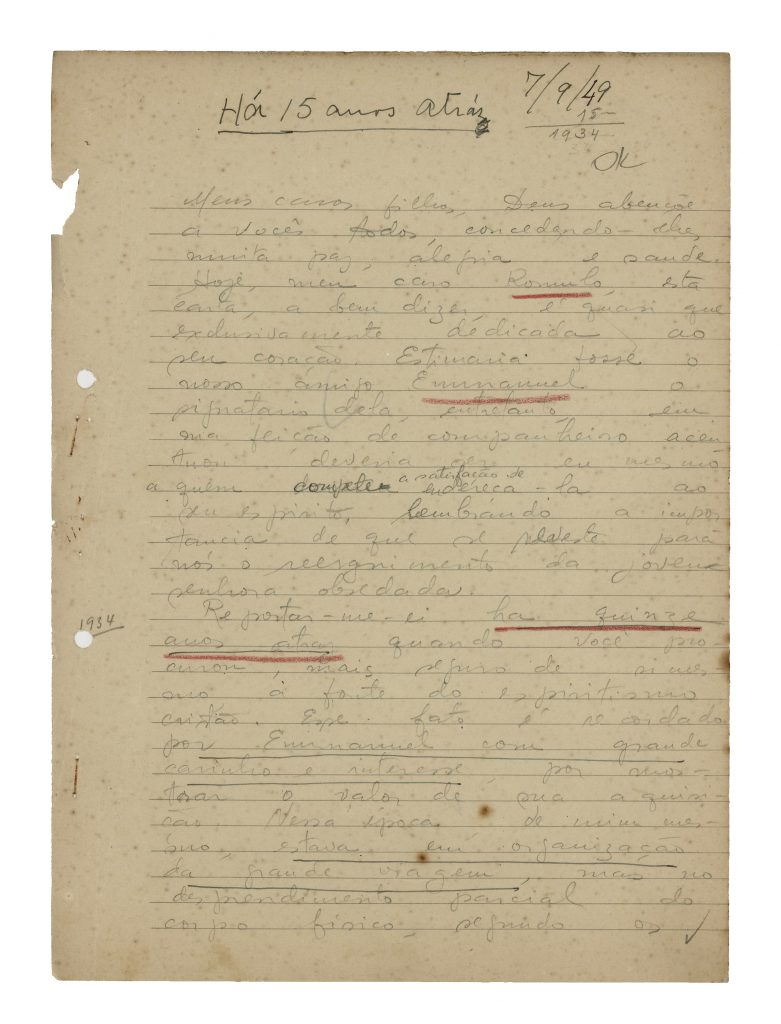 Há 15 anos atrás
7/9/49
15-
1934
OK
Meus caros filhos, Deus abençoe
a vocês todos, concedendo-lhes
muita paz, alegria e saude.
Hoje, meu caro Romulo, esta
carta, a bem dizer, é quasi que
exclusivamente dedicada ao
seu coração. Estimaria fosse o
nosso amigo Emmanuel o
signatario dela, entretanto, em
ma feição de companheiro
deveria ser eu mesmo
a quem compete a satisfação de endereça-la ao
seu espirito, lembrando a impor
tancia de que se reveste para
nós o reerguimento da jovem
senhora obsedada.
Reportar-me-ei ha quinze
1934
anos atraz quando você pro-
curou, mais seguro de si mes-
mo á fonte do espiritismo
cristão. Esse fato é recordado
por Emmanuel com grande
carinho e interesse, por mos-
trar o valor de sua aquisi-
ção. Nessa época de mim mes-
mo, estava em organização
da grande viagem, mas no
desprendimento parcial do
corpo físico, segundo os